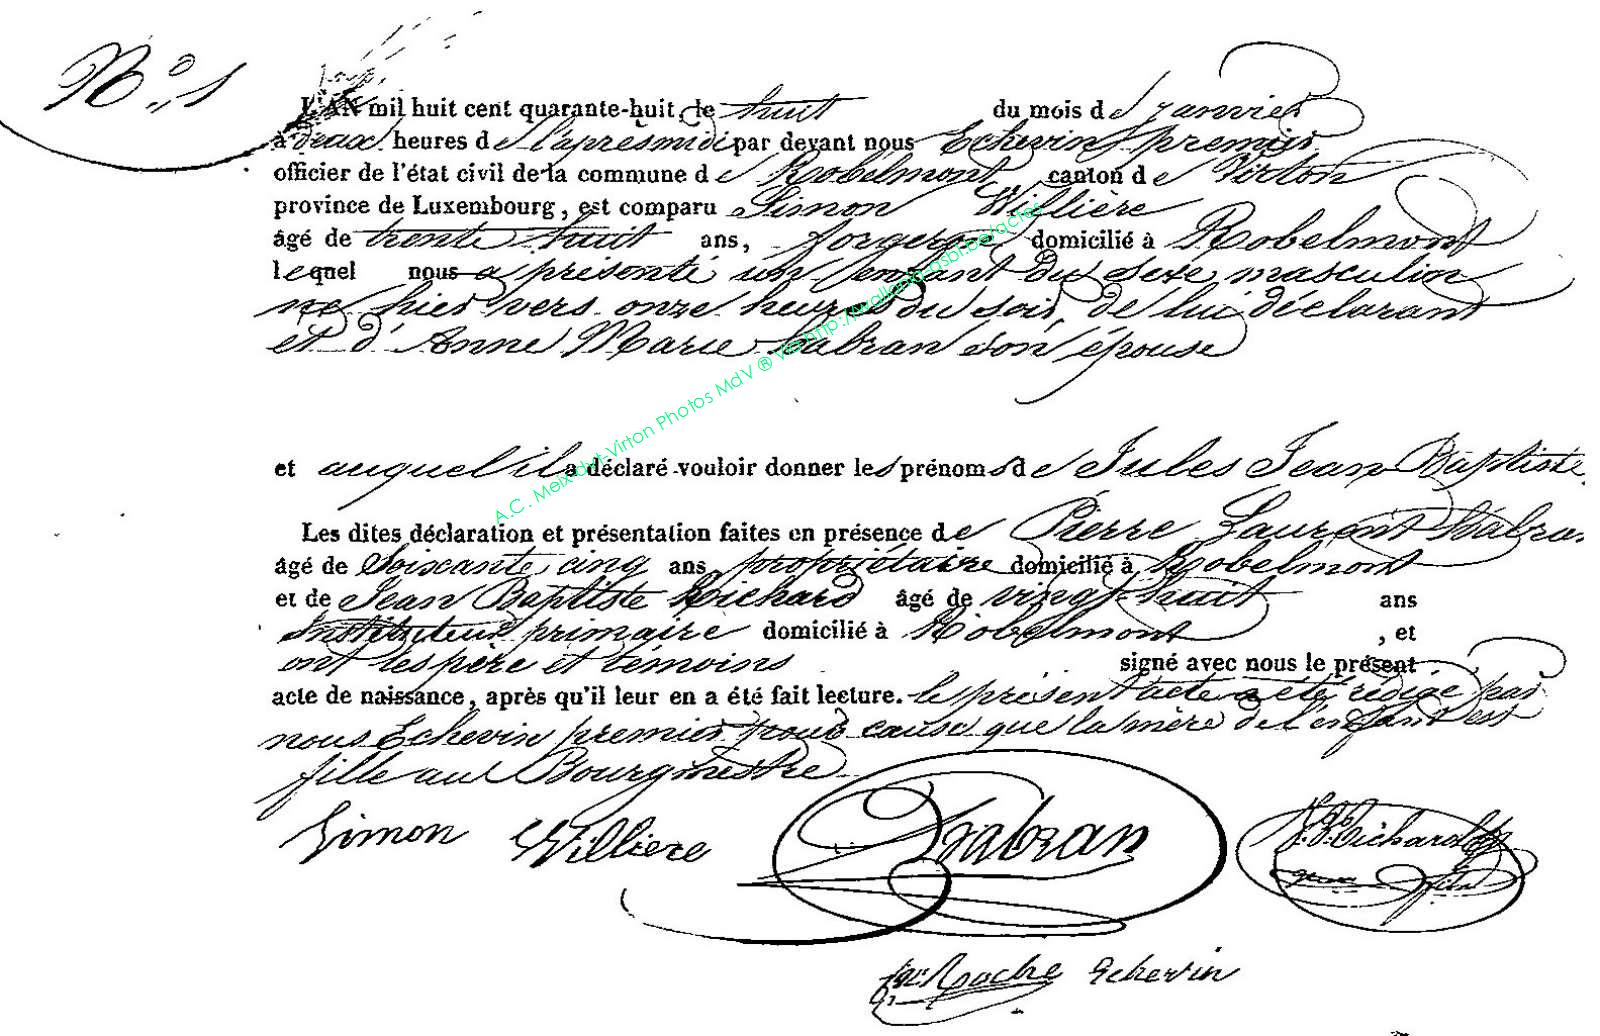 N° 1
L'AN mil huit cent quarante-huit, le huit du mois de janvier
à deux heures de l'aprèsmidi par devant nous Echevin premier
officier de l'état civil de la commune de Robelmont canton de Virton
province de Luxembourg, est comparu Simon Willière
âgé de trente huit ans, forgeron domicilié à Robelmont
lequel nous a présenté un enfant du sexe masculin
né hier vers onze heures du soir, de lui déclarant
et d'Anne Marie Habran son épouse
et auquel il a déclaré vouloir donner les prénoms de Jules Jean Baptiste
Les dites déclaration et présentation faites en présence de Pierre Laurent Habran
âgé de Soixante cinq ans propriétaire domicilié à Robelmont
et de Jean Baptiste Richard âgé de vingt huit ans
Instituteur primaire domicilié à Robelmont, et
ont les père et témoins signé avec nous le présent
acte de naissance, après qu'il leur en a été fait lecture. le présent acte a été rédigé par
nous Echevin premier pour cause que la mère de l'enfant est
fille au Bourgmestre
Simon Williere Habran Richard
Roche Echevin
A.C. Meix-dvt-Virton Photos MdV ® via http://wallonia-asbl.be/actes